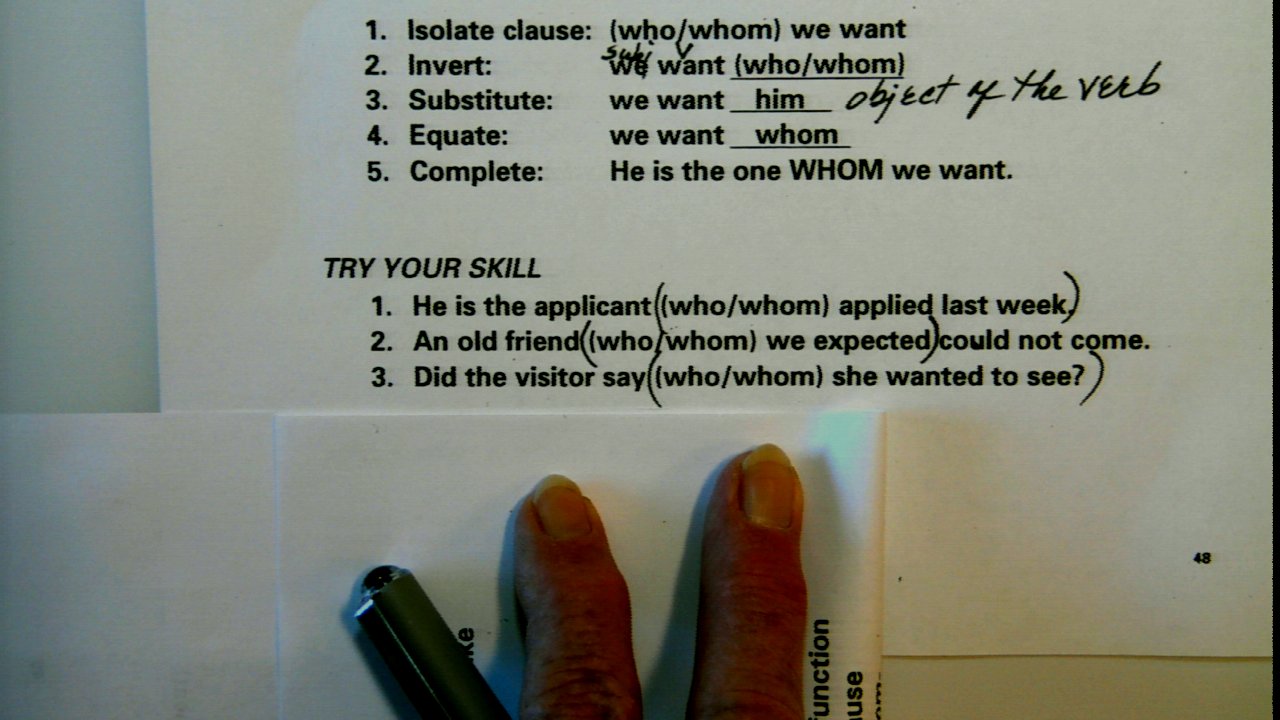 1. Isolate clause: (who/whom) we want
subj v
2. Invert: we want (who/whom)
3. Substitute: we want him object of the verb
4. Equate: we want whom
5. Complete: He is the one WHOM we want.
TRY YOUR SKILL
1. He is the applicant ((who/whom) applied last week.)
2. An old friend ((who/whom) we expected) could not come.
3. Did the visitor say ((who/whom) she wanted to see?)
48
function